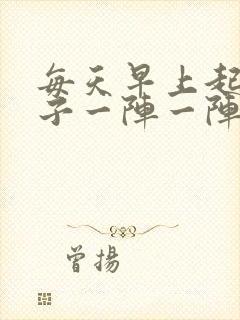 每天早上起
子一陣一陣
曾揚